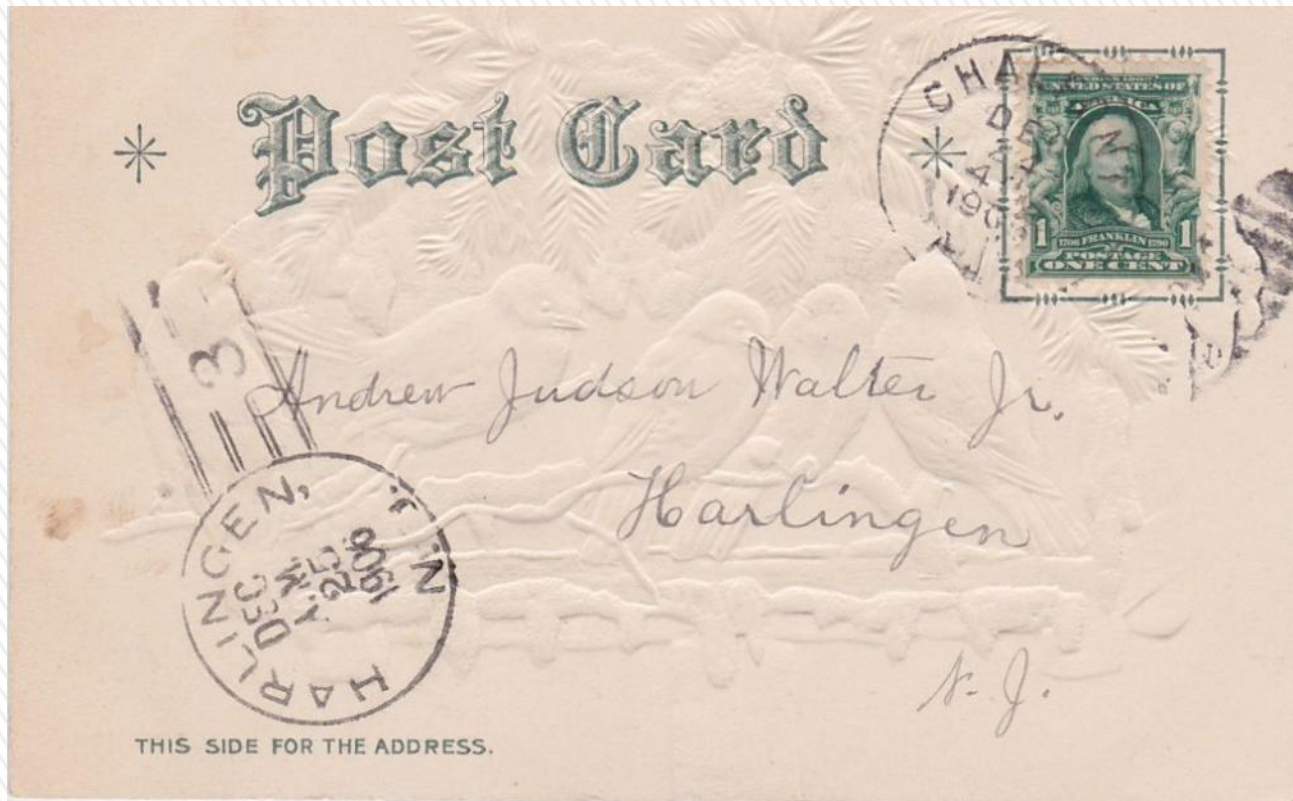 Post Card
SERIES 1902
UNITED STATES OF
AMERICA
1706 FRANKLIN 1790
1 1
POSTAGE
ONE CENT
CHA
190
3
Andrew Judson Walter Jr.
Harlingen
N. J.
HARLINGEN, N.J.
DEC
25
A.M.
1906
THIS SIDE FOR THE ADDRESS.